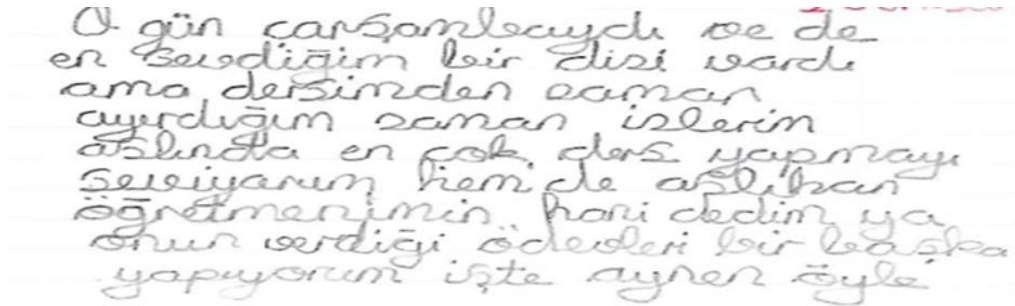 O gün çarşambaydı ve de
en sevdiğim bir dizi vardı
ama dersimden zaman
ayırdığım zaman izlerim
aslında en çok ders yapmayı
seviyorum hem de aslıhan
öğretmenimin hani dedim ya
onun verdiği ödevleri bir başka
yapıyorum işte aynen öyle